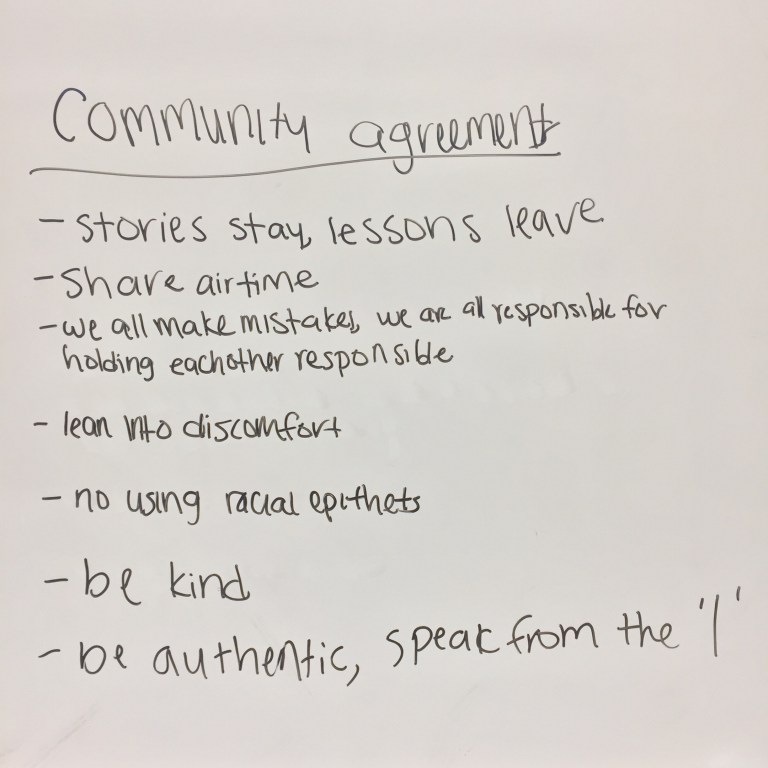 Community agreement
- stories stay, lessons leave
- Share airtime
- we all make mistakes, we are all responsible for
holding eachother responsible
- lean into discomfort
- no using racial epithets
- be kind
- be authentic, speak from the 'I'